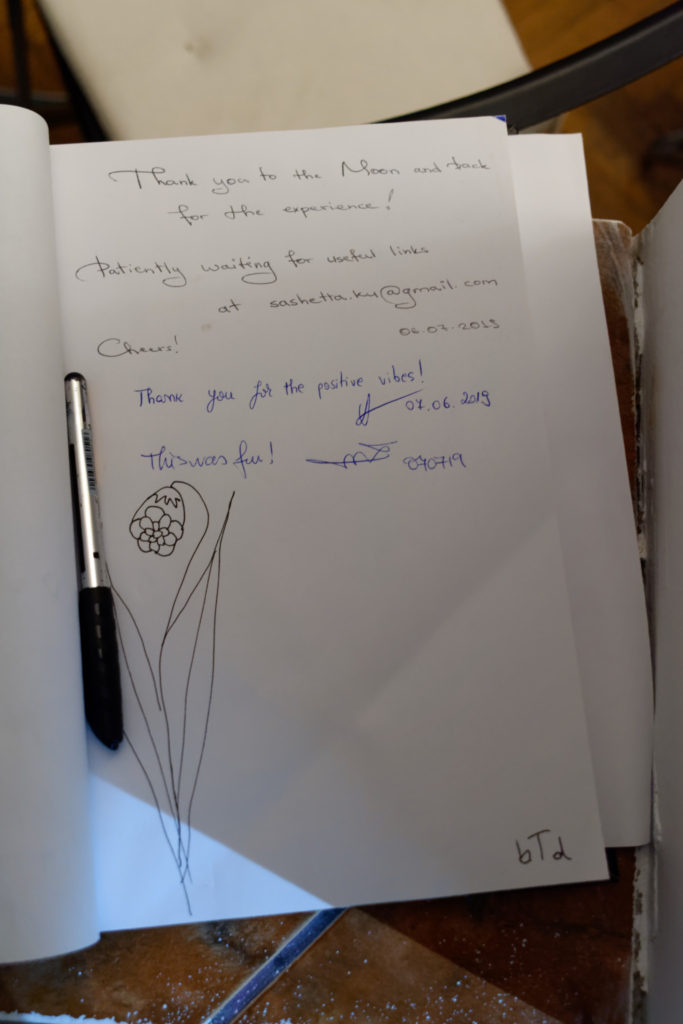 Thank you to the Moon and back
for the experience!
Patiently waiting for useful links
at sashetta.ku@gmail.com
06.07.2019
Cheers!
Thank you for the positive vibes!
07.06.2019
This was fun!
070719
bTd